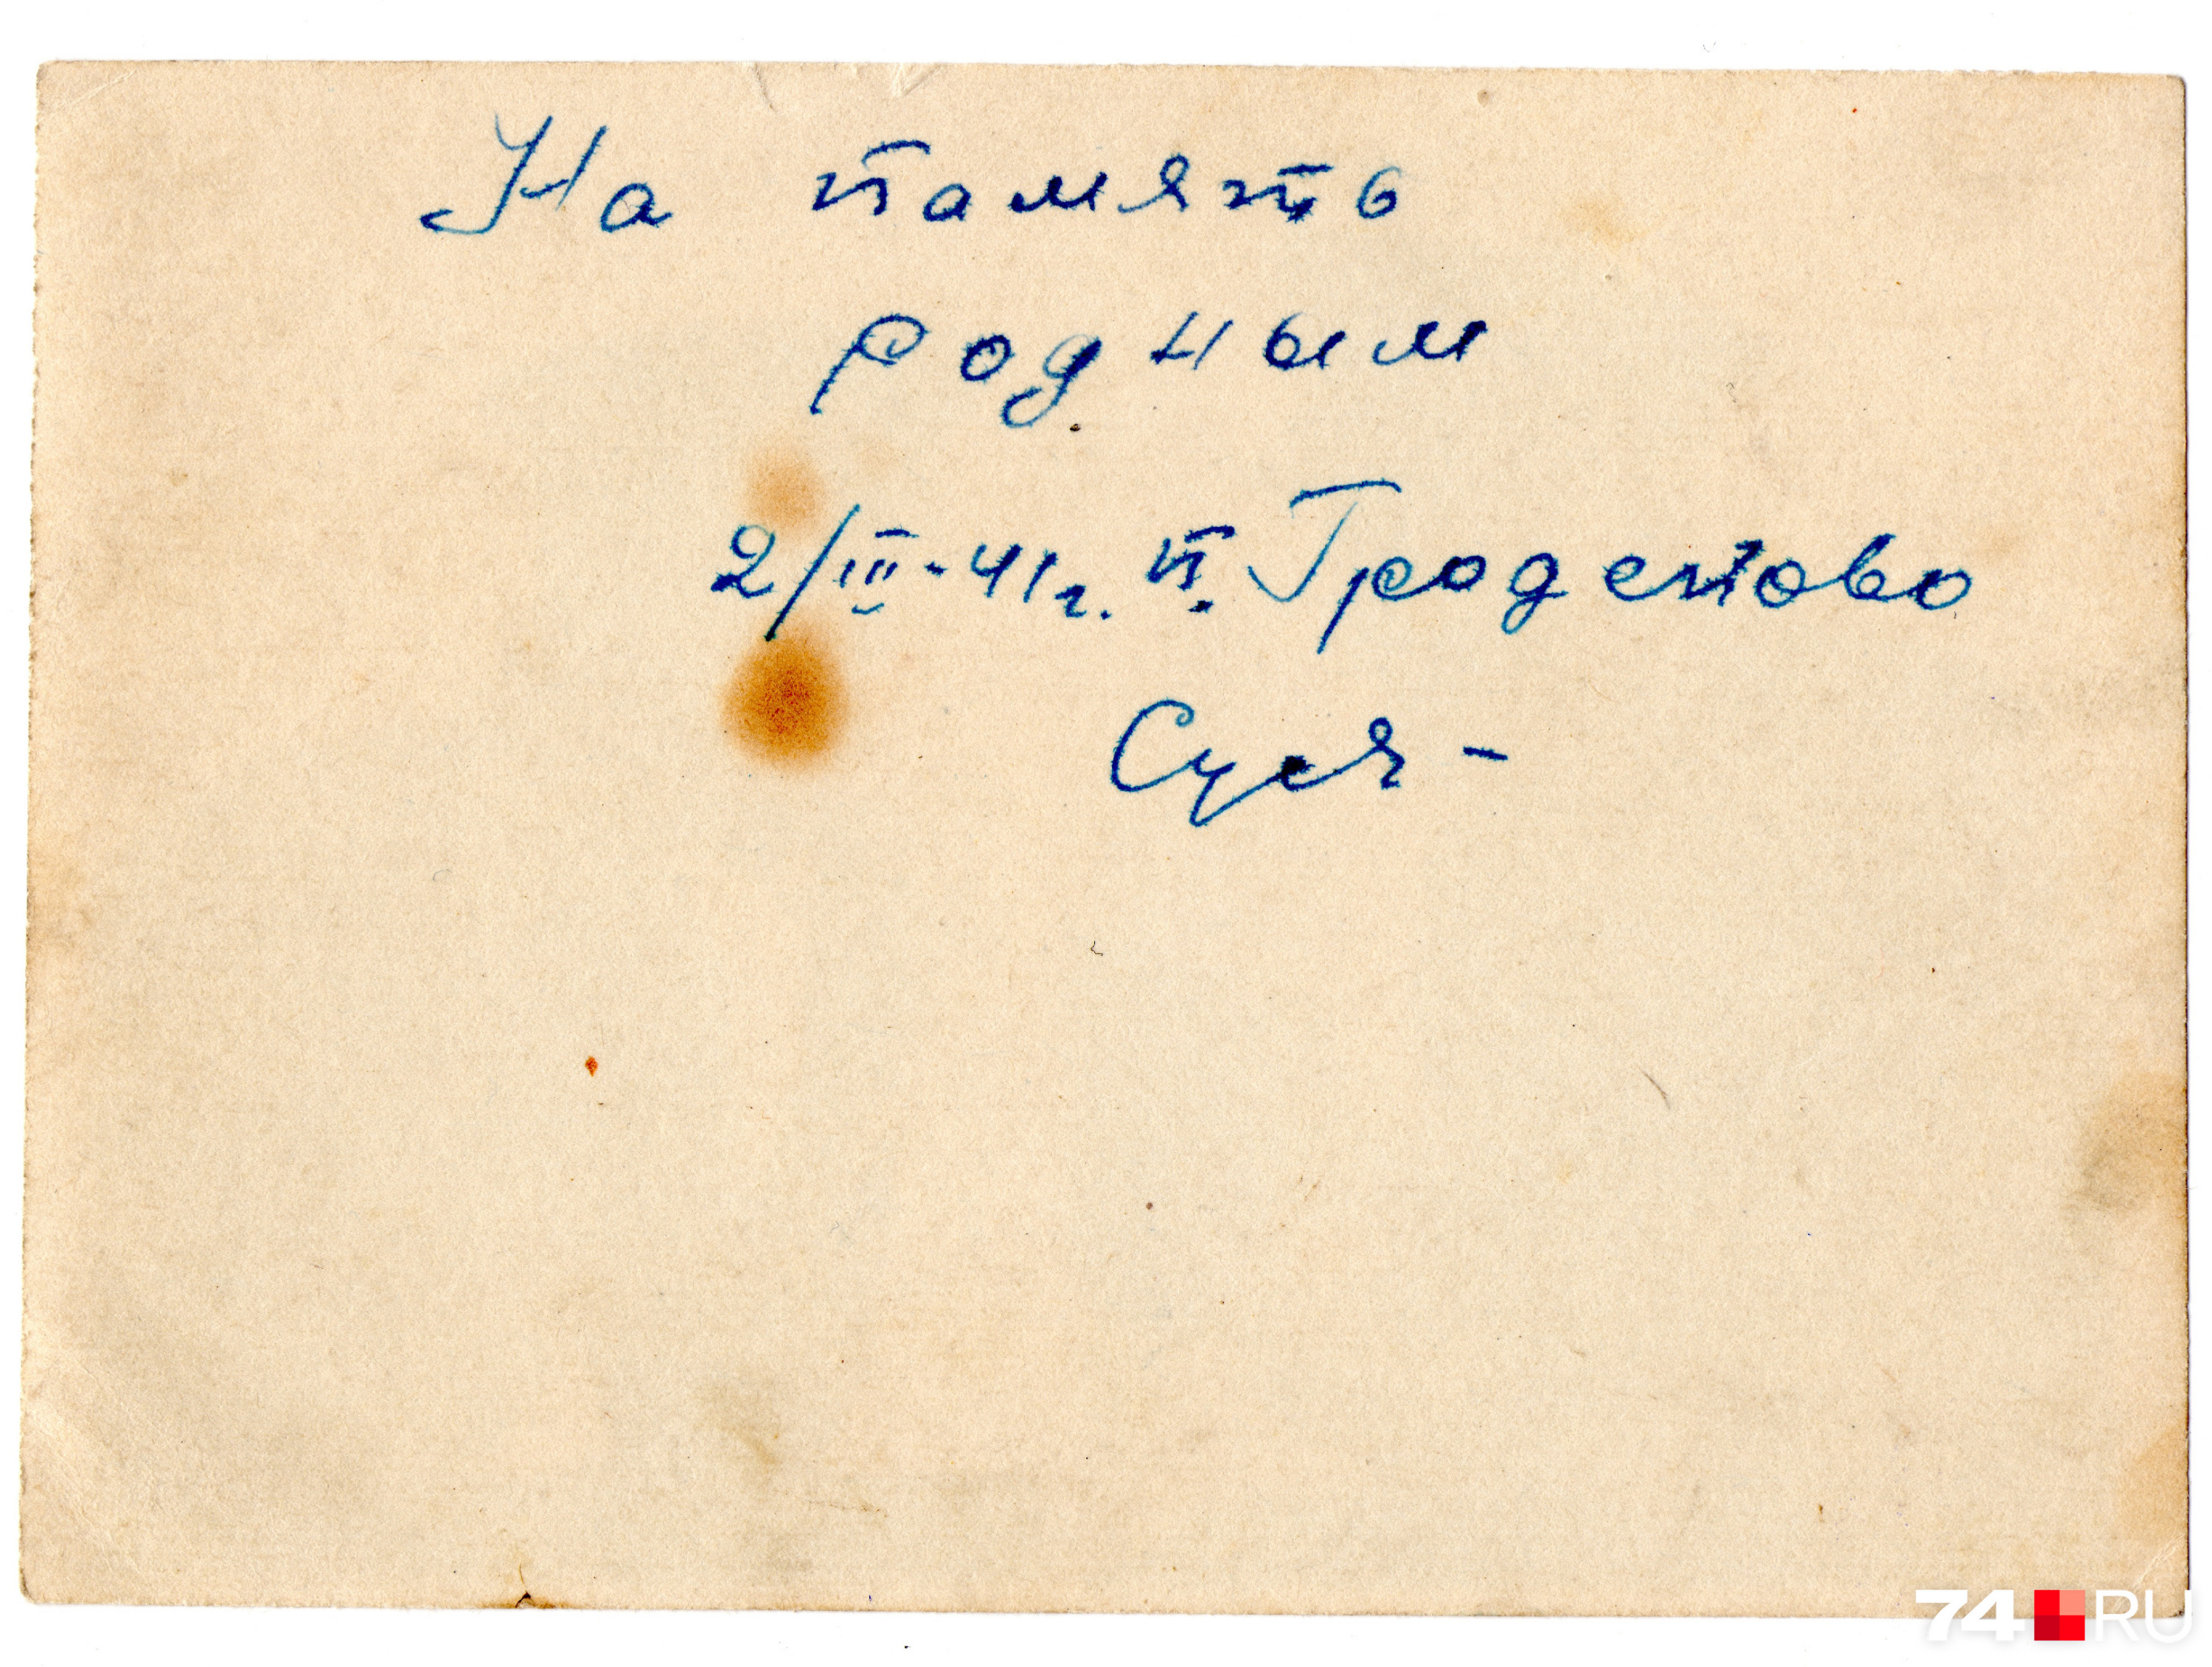 На память
родным
2/III-41г. п. Гродеково
Суся -
74 RU